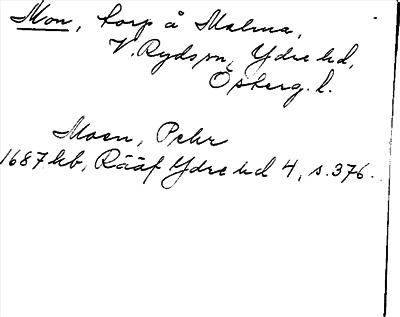 Mon, torp å Malma,
V. Ryds sn, Ydre hd,
Österg. l.
Moen, Pehr
1687 kb, Rääf Ydre hd 4, s. 376.